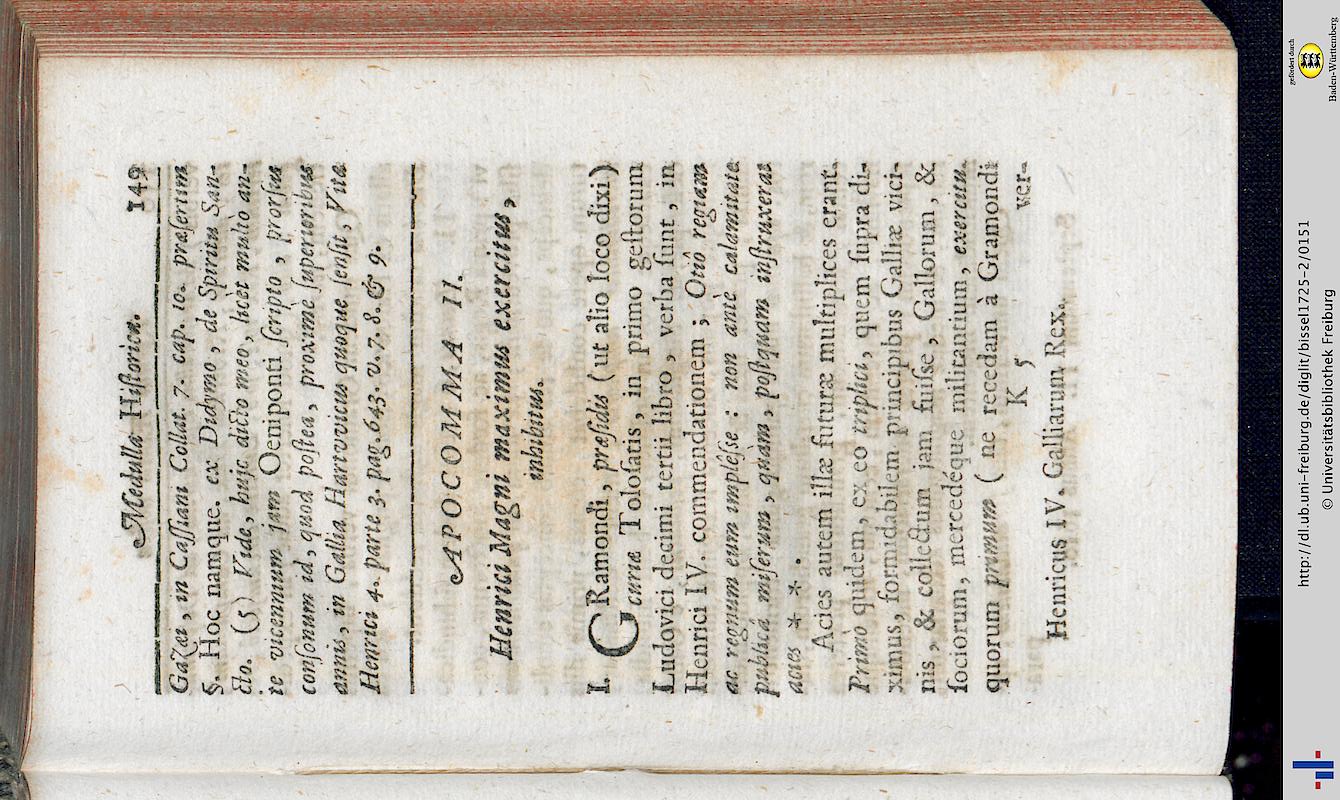 Medulla Hiſtorica. 149
Gazæi, in Caſſiani Collat. 7. cap. 10. præſertim
§. Hoc namque. ex Didymo, de Spiritu San-
cto. (5) Vide, huic dicto meo, licèt multò an-
te vicennium jam Oeniponti ſcripto, prorſus
conſonum id, quod poſtea, proximè ſuperioribus
annis, in Gallia Harvvicus quoque ſenſit, Vitæ
Henrici 4. parte 3. pag. 643. v. 7. 8. & 9.
APOCOMMA II.
Henrici Magni maximus exercitus,
inhibitus.
I. GRamondi, præſidis (ut alio loco dixi)
carræ Toloſatis, in primo geſtorum
Ludovici decimi tertii libro, verba ſunt, in
Henrici IV. commendationem; Otiô regiam
ac regnum eum impleſſe: non antè calamitate
publicâ miſerum, quàm, poſtquam inſtruxerat
acies * *.
Acies autem illæ futuræ multiplices erant.
Primò quidem, ex eo triplici, quem ſupra di-
ximus, formidabilem principibus Galliæ vici-
nis, & collectum jam fuiſſe, Gallorum, &
ſociorum, mercedéque militantium, exercitu.
quorum primum (ne recedam à Gramondi
K 5 ver-
Henricus IV. Galliarum Rex.
gefördert durch
Baden-Württemberg
http://dl.ub.uni-freiburg.de/diglit/bissel1725-2/0151
© Universitätsbibliothek Freiburg